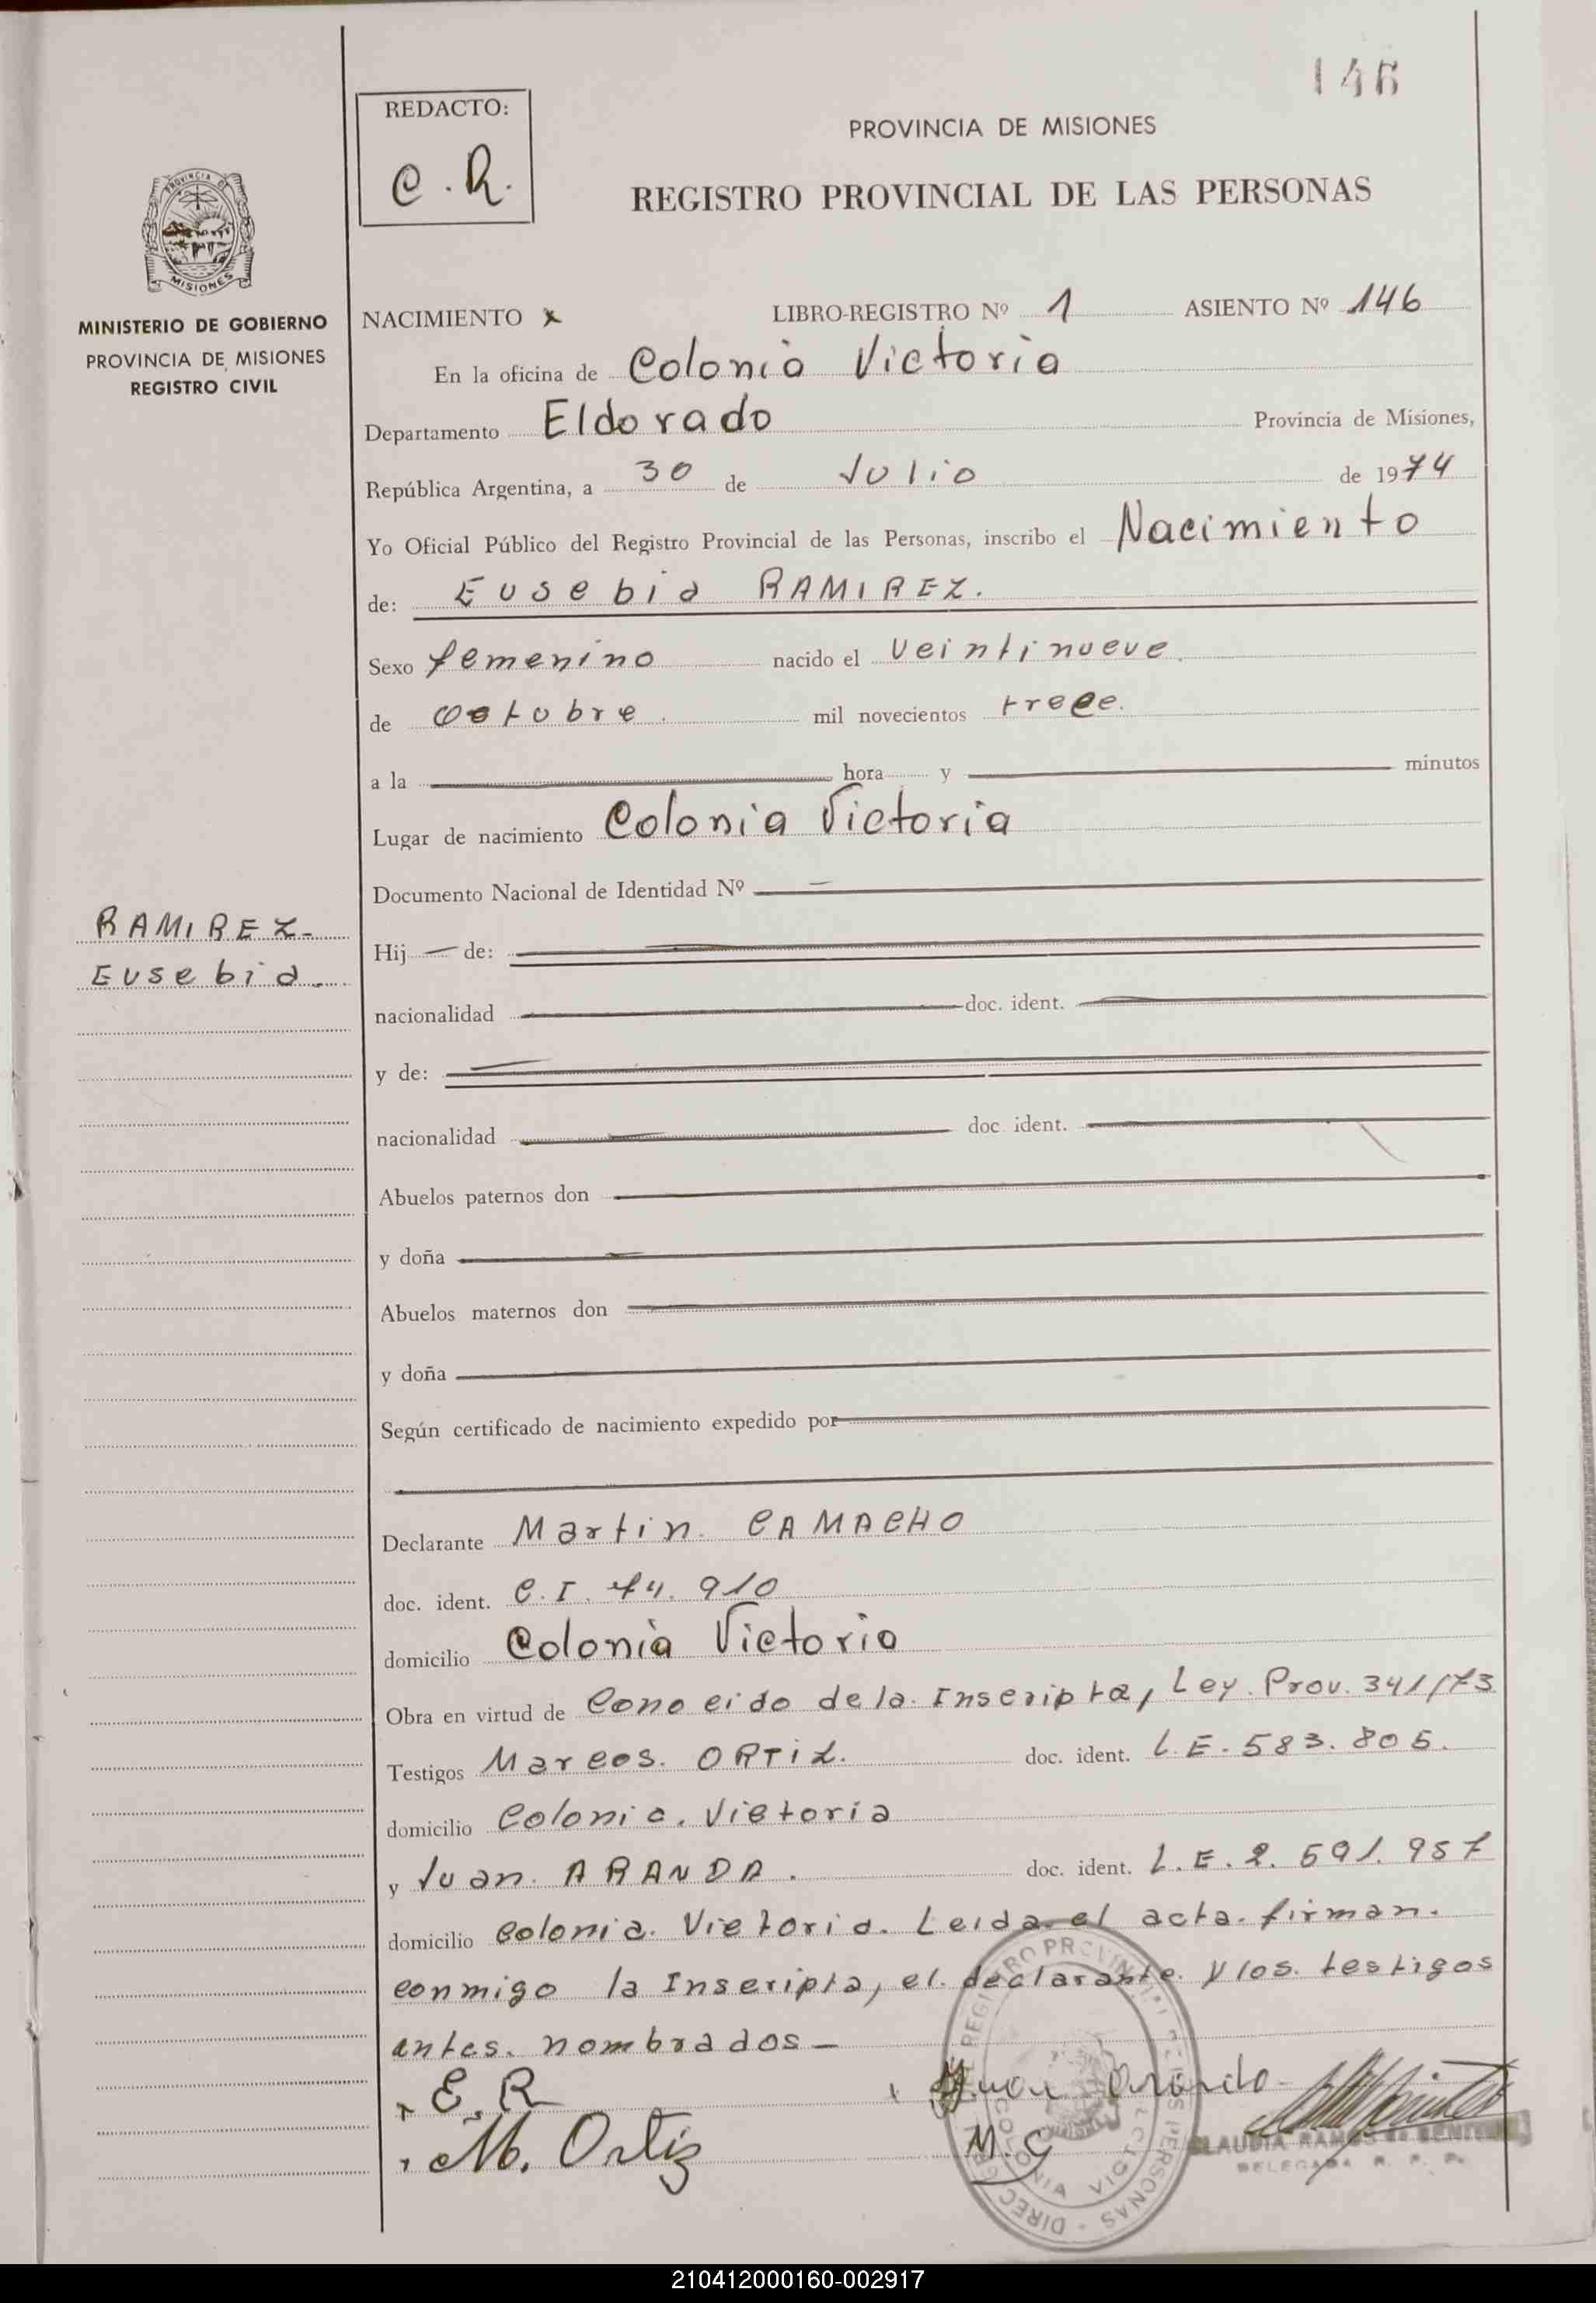 146
REDACTO:
C. R.
PROVINCIA DE MISIONES
REGISTRO PROVINCIAL DE LAS PERSONAS
PROVINCIA DE
MISIONES
MINISTERIO DE GOBIERNO
PROVINCIA DE MISIONES
REGISTRO CIVIL
NACIMIENTO x LIBRO-REGISTRO Nº 1 ASIENTO Nº 146
En la oficina de Colonia Victoria
Departamento Eldorado Provincia de Misiones,
República Argentina, a 30 de Julio de 1974
Yo Oficial Público del Registro Provincial de las Personas, inscribo el Nacimiento
de: Eusebia RAMIREZ.
Sexo femenino nacido el veintinueve
de octubre. mil novecientos trece.
a la hora y minutos
Lugar de nacimiento Colonia Victoria
Documento Nacional de Identidad Nº —
RAMIREZ-
Eusebia.
Hij — de:
nacionalidad doc. ident.
y de:
nacionalidad doc. ident.
Abuelos paternos don
y doña
Abuelos maternos don
y doña
Según certificado de nacimiento expedido por
Declarante Martin. CAMACHO
doc. ident. C.I. 74. 910
domicilio Colonia Victoria
Obra en virtud de Conocido de la. Inscripta, Ley. Prov. 341/73
Testigos Marcos. ORTIZ. doc. ident. L.E. 583. 805.
domicilio Colonia. Victoria
y Juan. ARANDA. doc. ident. L.E. 2. 591. 957
domicilio Colonia. Victoria. Leida el acta. firman.
conmigo la Inscripta, el. declarante. y los. testigos
antes. nombrados —
E. R
Juan Aranda
M. Ortiz
M. C
CLAUDIA RAMOS de BENITEZ
DELEGADA R. P. P.
210412000160-002917